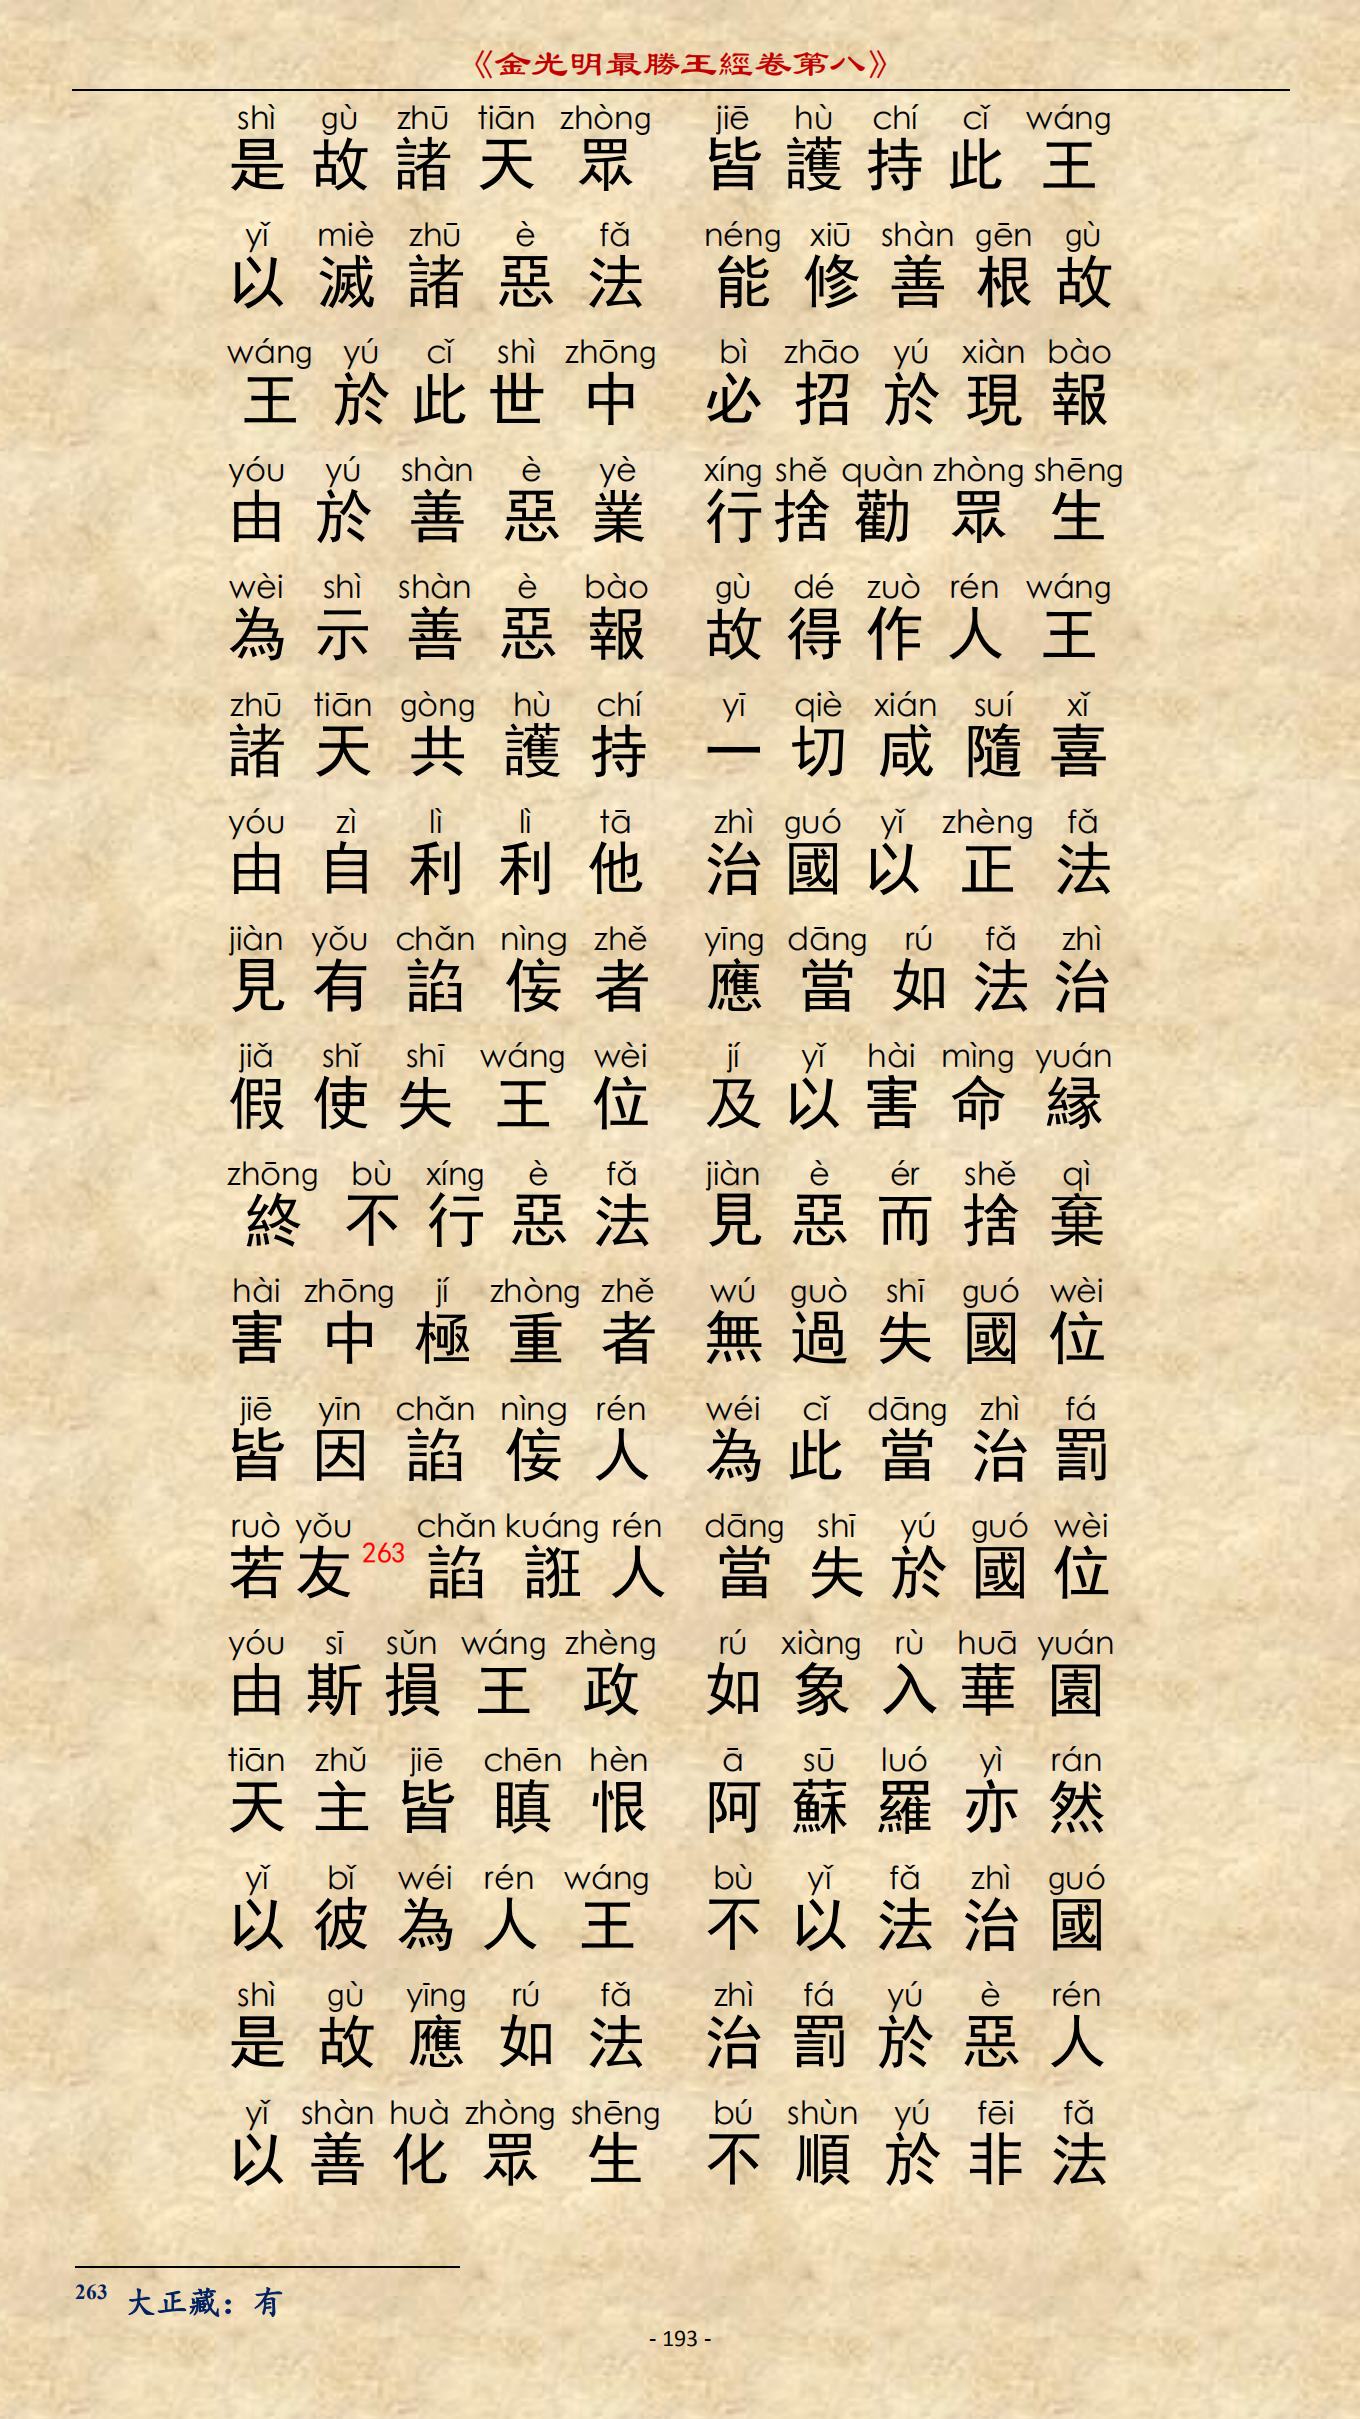 《金光明最勝王經卷第八》
shì gù zhū tiān zhòng jiē hù chí cǐ wáng
是故諸天眾 皆護持此王
yǐ miè zhū è fǎ néng xiū shàn gēn gù
以滅諸惡法 能修善根故
wáng yú cǐ shì zhōng bì zhāo yú xiàn bào
王於此世中 必招於現報
yóu yú shàn è yè xíng shě quàn zhòng shēng
由於善惡業 行捨勸眾生
wèi shì shàn è bào gù dé zuò rén wáng
為示善惡報 故得作人王
zhū tiān gòng hù chí yī qiè xián suí xǐ
諸天共護持 一切咸隨喜
yóu zì lì lì tā zhì guó yǐ zhèng fǎ
由自利利他 治國以正法
jiàn yǒu chǎn nìng zhě yīng dāng rú fǎ zhì
見有諂侫者 應當如法治
jiǎ shǐ shī wáng wèi jí yǐ hài mìng yuán
假使失王位 及以害命緣
zhōng bù xíng è fǎ jiàn è ér shě qì
終不行惡法 見惡而捨棄
hài zhōng jí zhòng zhě wú guò shī guó wèi
害中極重者 無過失國位
jiē yīn chǎn nìng rén wéi cǐ dāng zhì fá
皆因諂侫人 為此當治罰
ruò yǒu chǎn kuáng rén dāng shī yú guó wèi
若友263諂誑人 當失於國位
yóu sī sǔn wáng zhèng rú xiàng rù huā yuán
由斯損王政 如象入華園
tiān zhǔ jiē chēn hèn ā sū luó yì rán
天主皆瞋恨 阿蘇羅亦然
yǐ bǐ wéi rén wáng bù yǐ fǎ zhì guó
以彼為人王 不以法治國
shì gù yīng rú fǎ zhì fá yú è rén
是故應如法 治罰於惡人
yǐ shàn huà zhòng shēng bú shùn yú fēi fǎ
以善化眾生 不順於非法
263 大正藏：有
- 193 -